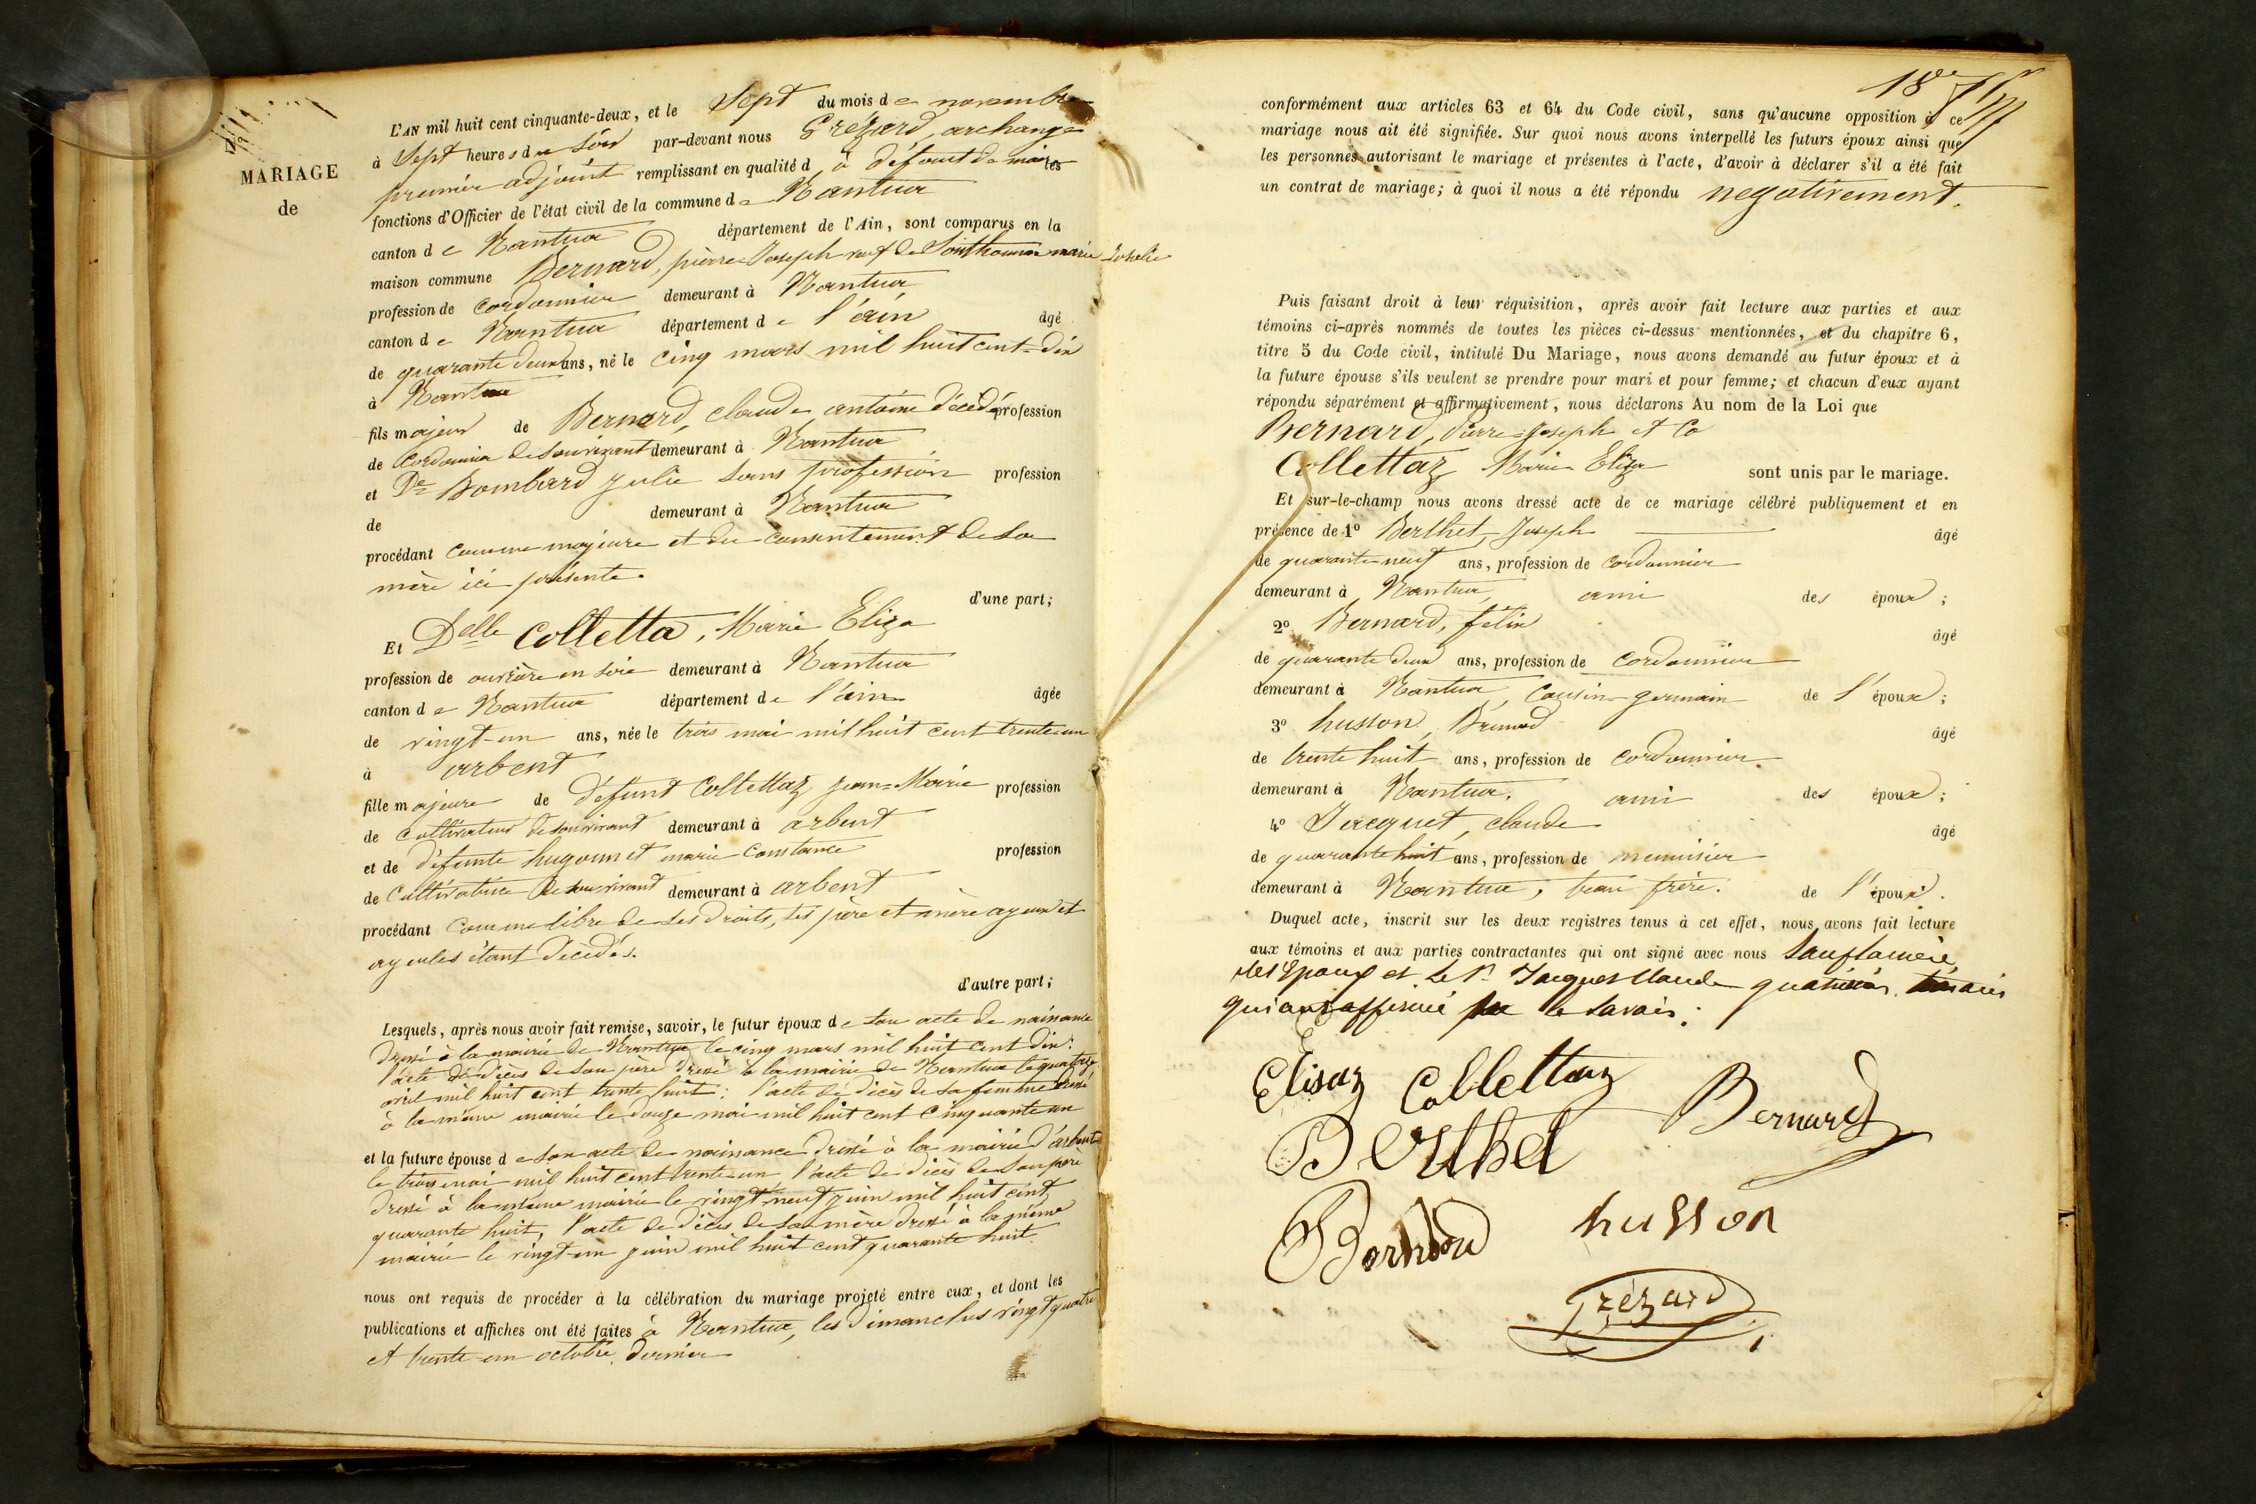 MARIAGE
de
L'AN mil huit cent cinquante-deux, et le Sept du mois de novembre
à Sept heures du soir par-devant nous Grézard, archange
premier adjoint remplissant en qualité d à défaut de maire les
fonctions d'Officier de l'état civil de la commune de Nantua
canton de Nantua département de l'Ain, sont comparus en la
maison commune Bernard, pierre Joseph veuf de marie
profession de cordonnier demeurant à Nantua
canton de Nantua département de l'ain âgé
de quarante deux ans, né le cinq mars mil huit cent-dix
à Nantua
fils majeur de Bernard, claude antoine décédé profession
de Cordonnier de son vivant demeurant à Nantua
et De Bombard Julie sans profession profession
de demeurant à Nantua
procédant comme majeure et du consentement de sa
mère ici présente.
d'une part;
Et Delle Colletta, Marie Eliza
profession de ouvrière en soie demeurant à Nantua
canton de Nantua département de l'ain âgée
de vingt-un ans, née le trois mai mil huit cent trente-un
à arbent
fille majeure de défunt Collettaz Jean-Marie profession
de Cultivateur de son vivant demeurant à arbent
et de défunte hugonnet marie Constance profession
de Cultivatrice de son vivant demeurant à arbent
procédant comme libre de ses droits, ses père et mère ayeux et
ayeules étant décédés.
d'autre part;
Lesquels, après nous avoir fait remise, savoir, le futur époux de son acte de naissance
dressé à la mairie de Nantua le cinq mars mil huit cent dix:
l'acte de décès de son père dressé à la mairie de Nantua le quatre
avril mil huit cent trente huit: l'acte de décès de sa femme dressé
à la même mairie le douze mai mil huit cent cinquante un
et la future épouse de son acte de naissance dressé à la mairie d'arbent
le trois mai mil huit cent trente-un l'acte de décès de son père
dressé à la même mairie le vingt neuf juin mil huit cent
quarante huit, l'acte de décès de sa mère dressé à la même
mairie le vingt-un juin mil huit cent quarante huit.
nous ont requis de procéder à la célébration du mariage projeté entre eux, et dont les
publications et affiches ont été faites à Nantua, les dimanches vingt quatre
et trente-un octobre dernier
18e
conformément aux articles 63 et 64 du Code civil, sans qu'aucune opposition à ce
mariage nous ait été signifiée. Sur quoi nous avons interpellé les futurs époux ainsi que
les personnes autorisant le mariage et présentes à l'acte, d'avoir à déclarer s'il a été fait
un contrat de mariage; à quoi il nous a été répondu negativement.
Puis faisant droit à leur réquisition, après avoir fait lecture aux parties et aux
témoins ci-après nommés de toutes les pièces ci-dessus mentionnées, et du chapitre 6,
titre 5 du Code civil, intitulé Du Mariage, nous avons demandé au futur époux et à
la future épouse s'ils veulent se prendre pour mari et pour femme; et chacun d'eux ayant
répondu séparément et affirmativement, nous déclarons Au nom de la Loi que
Bernard, Pierre-Joseph et Co
Collettaz Marie Eliza sont unis par le mariage.
Et sur-le-champ nous avons dressé acte de ce mariage célébré publiquement et en
présence de 1º Berthet, Joseph âgé
de quarante-neuf ans, profession de cordonnier
demeurant à Nantua, ami des époux;
2º Bernard, félix âgé
de quarante deux ans, profession de cordonnier
demeurant à Nantua, cousin-germain de l'époux;
3º husson, Bernard âgé
de trente huit ans, profession de cordonnier
demeurant à Nantua. ami des époux;
4º Jacquet, claude âgé
de quarante huit ans, profession de menuisier
demeurant à Nantua, beau frère. de l'époux.
Duquel acte, inscrit sur les deux registres tenus à cet effet, nous avons fait lecture
aux témoins et aux parties contractantes qui ont signé avec nous Sauf la mère
de l'Epoux et le Sr Jacquet Claude quatrième
qui ont affirmé ne le savoir.
Elisaz Collettaz
Bernard
Berthet
Bernard
husson
Grézard